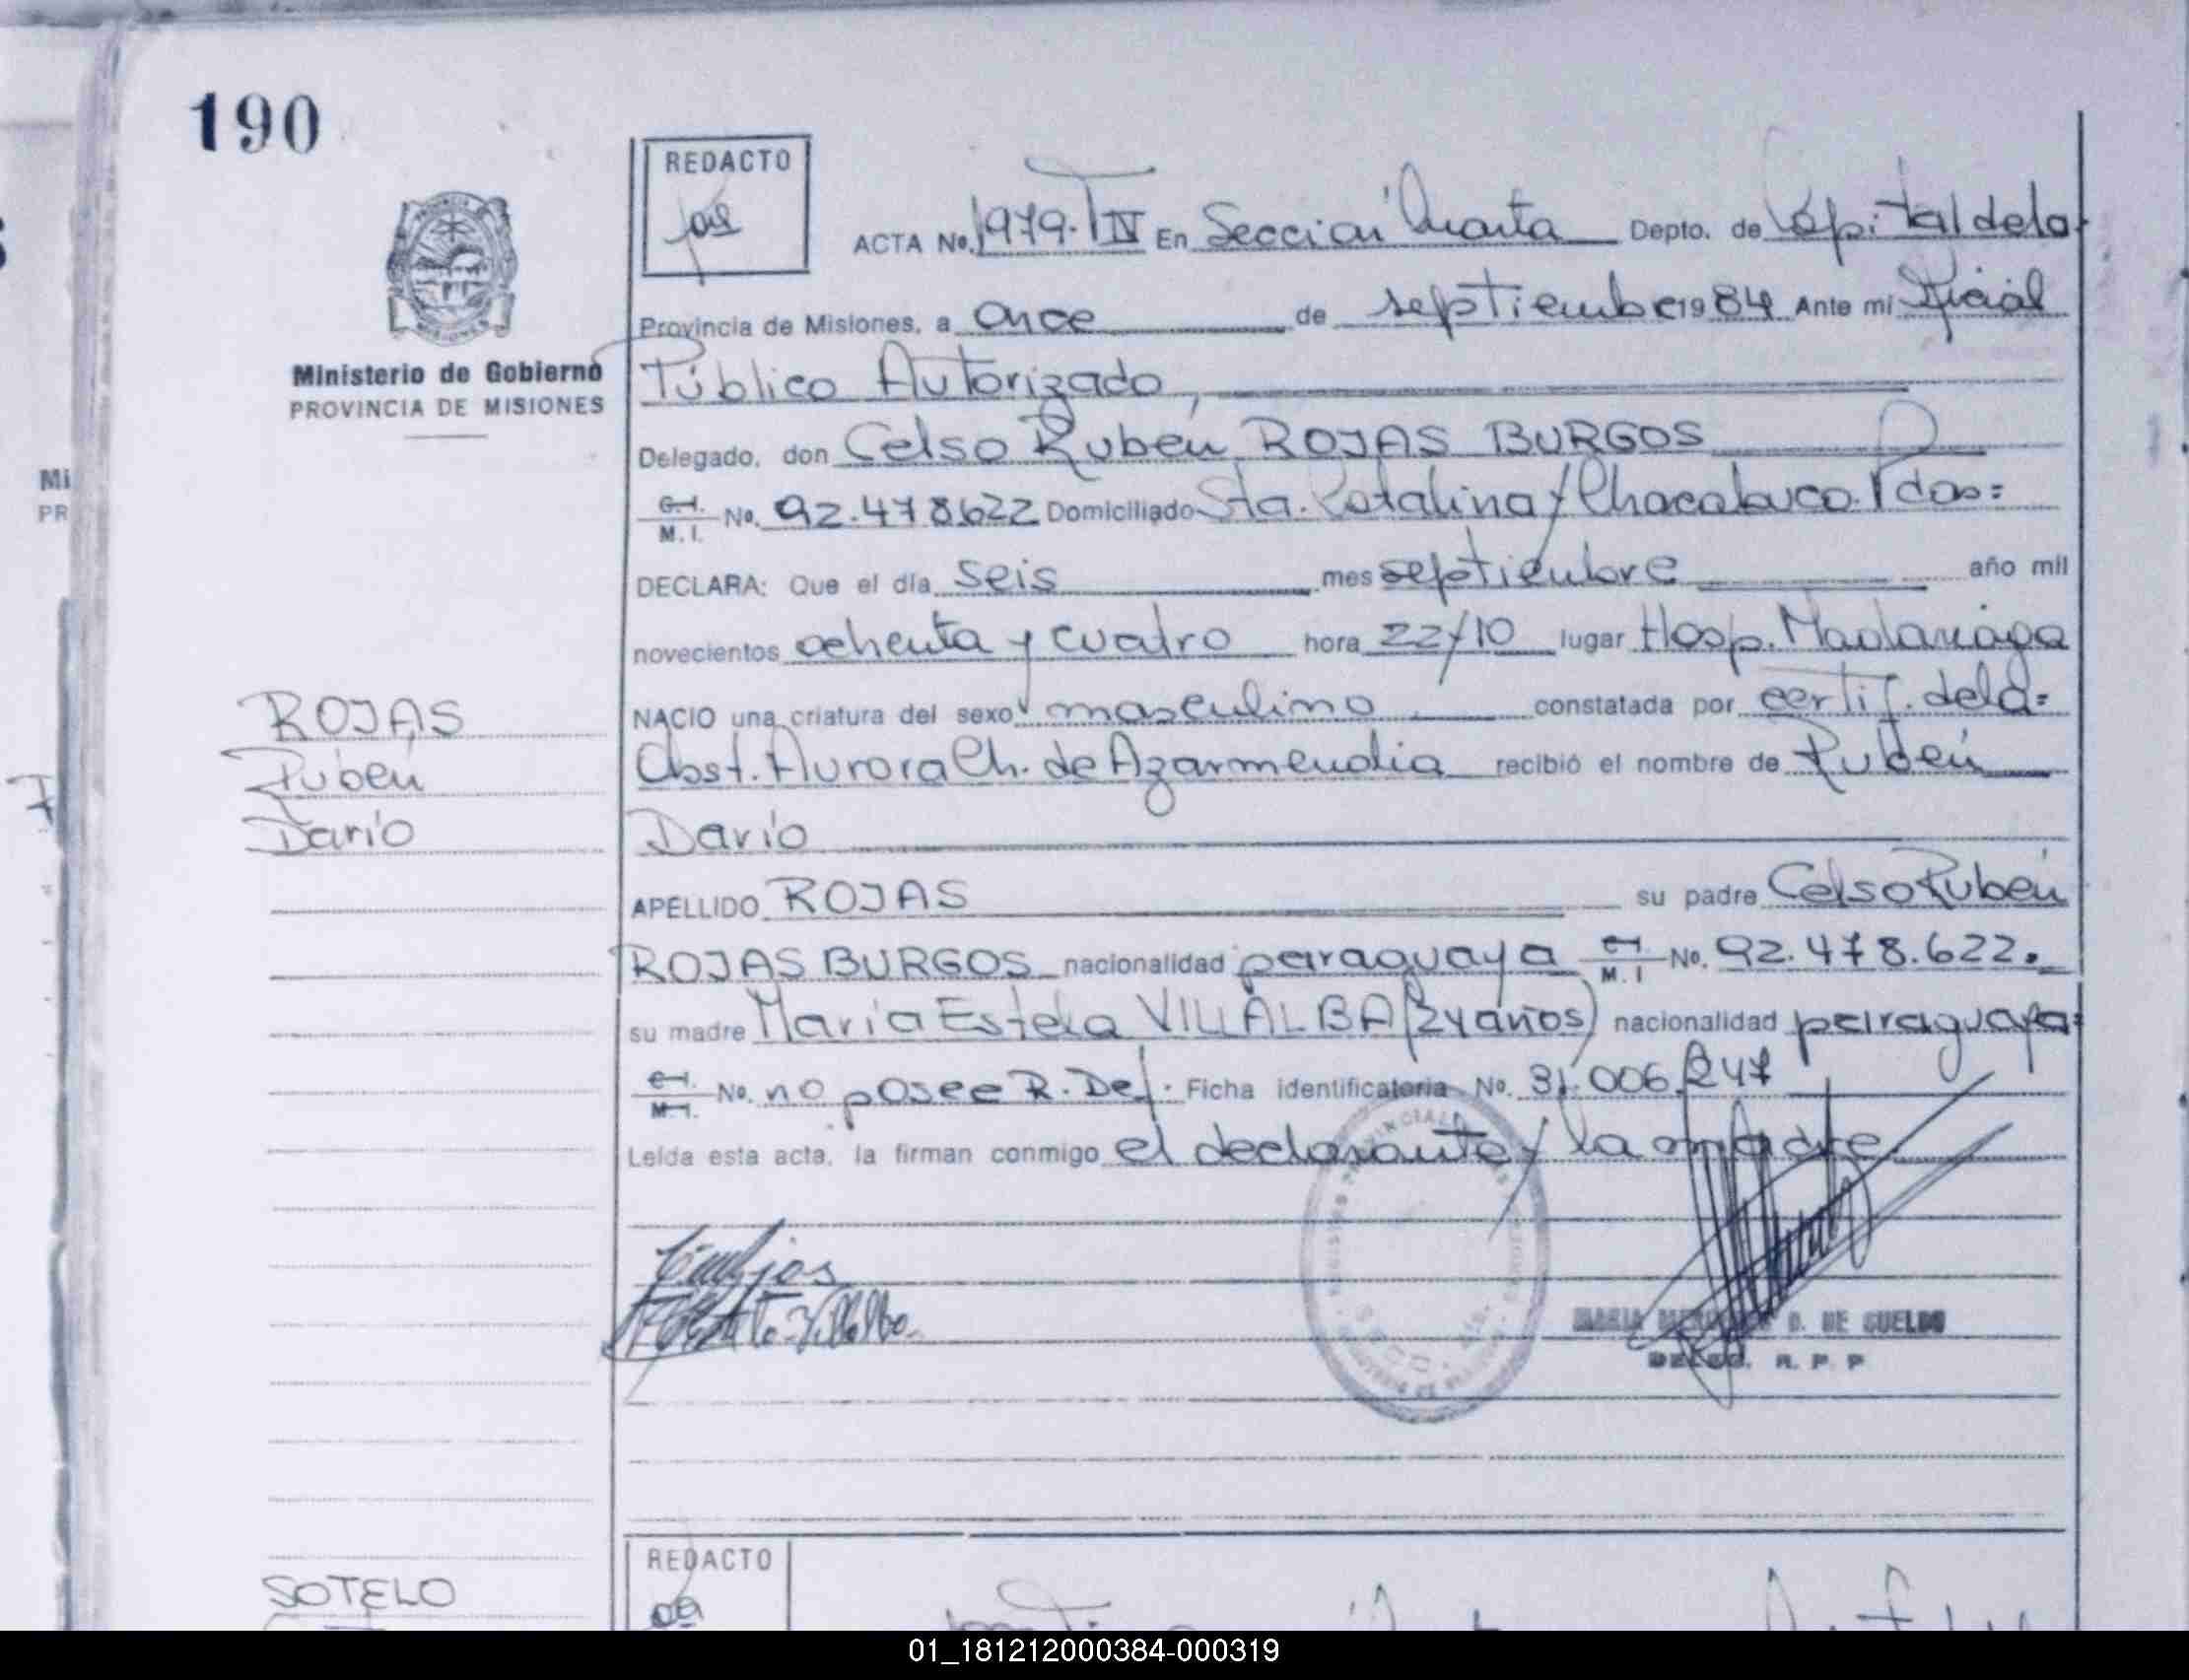 190
REDACTO
ACTA No. 1979-T IV En Sección Cuarta Depto. de Capital de la
Provincia de Misiones, a once de septiembre 1984 Ante mi Oficial
Ministerio de Gobierno
PROVINCIA DE MISIONES
Público Autorizado,
Delegado, don Celso Rubén ROJAS BURGOS
C.I. M.I. No. 92.478622 Domiciliado Sta. Catalina y Chacabuco. Pdas=
DECLARA: Que el día seis mes septiembre año mil
novecientos ochenta y cuatro hora 22/10 lugar Hosp. Madariaga
NACIO una criatura del sexo masculino constatada por certif. de la=
Obst. Aurora Ch. de Azarmendia recibió el nombre de Rubén
Darío
APELLIDO ROJAS su padre Celso Rubén
ROJAS BURGOS nacionalidad paraguaya C.I. M.I No. 92.478.622.
su madre María Estela VILLALBA (24 años) nacionalidad paraguaya=
C.I. M.I. No. no posee R. Def. Ficha identificatoria No. 31.006.247
Leída esta acta, la firman conmigo el declarante y la madre
ROJAS
Rubén
Darío
D. DE SUELDO
R. P. P
REDACTO
SOTELO
Mi
PR
01_181212000384-000319